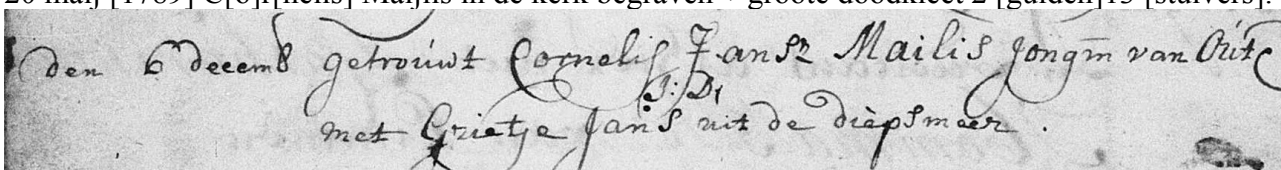 C[o]r[nelis] in de kerk begraven groote doodkleet 2 [gulden]15 [stuivers].
den 6 decemb getrouwt Cornelis Jansz Mailis Jongm van
J: D:
met Grietje Jans uit de diepsmeer .